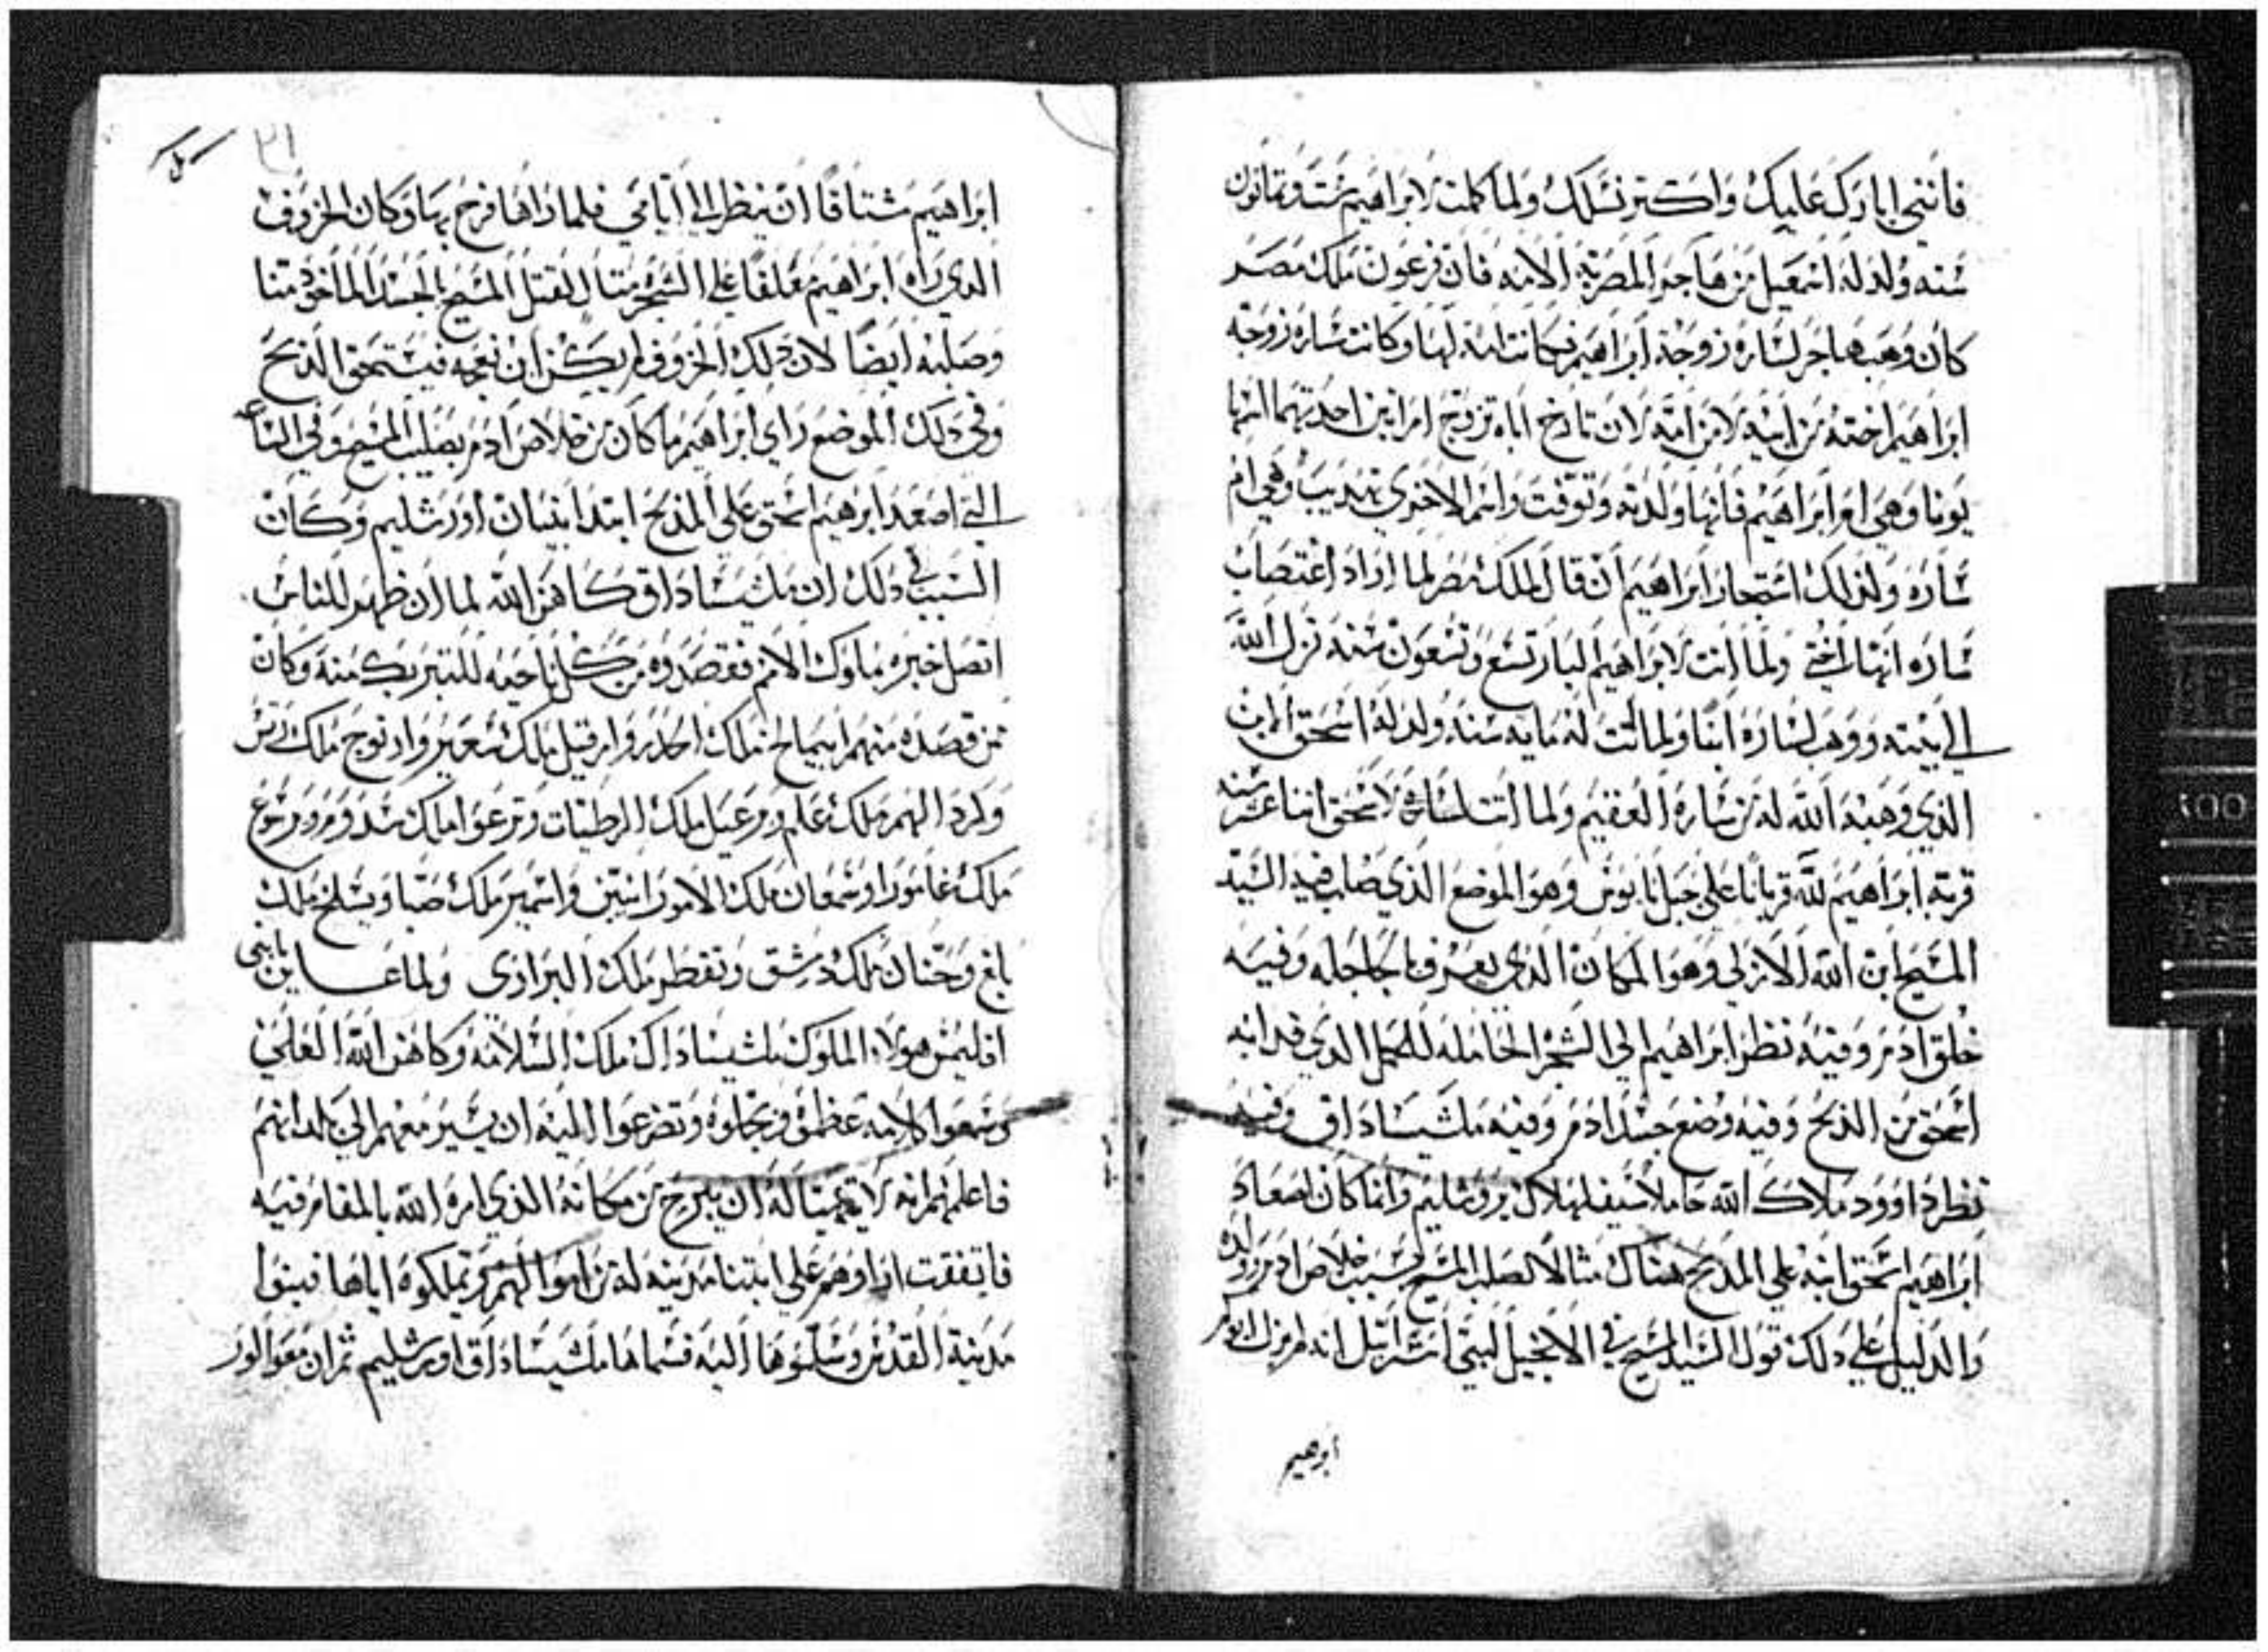 فانني ابارك عليك واكتر نسلك ولما كملت لابراهيم ستة وتمانون
سنه ولد له اسمعيل من هاجر المصرية الامه فان فرعون ملك مصر
كان وهب هاجر لساره زوجة ابراهيم فكانت امة لها وكانت ساره زوجة
ابراهيم اخته من ابيه لا من امه لان تارخ اباه تزوج امراتين احدتهما اسمها
يونا وهي ام ابراهيم فانها ولدته وتوفت واسم الاخري وهي ام
ساره ولذلك استجار ابراهيم ان قال لملك مصر لما اراد اغتصاب
ساره انها اختي ولما اتت لابراهيم البار تسع وتسعون سنه نزل الله
الي بيته ووهب لساره ابنا ولما تمت له مايه سنه ولد له اسحق ابن
الذي وهبه الله له من ساره العقيم ولما اتت لاسحق اتنا عشر سنه
قربه ابراهيم لله قربانا علي جبل يابوس وهو الموضع الذي صلب فيه السيد
المسيح ابن الله الازلي وهو المكان الذي يعرف بالجاجله وفيه
خلق ادم وفيه نظر ابراهيم الي الشجر الحامله للحمل الذي فدا به
اسحق من الذبح وفيه وضع جسد ادم وفيه ملشيساداق وفيه
نظر داوود ملاك الله حاملا سيفا لهلاك يروشليم وانما كان اصعاد
ابراهيم اسحق ابنه علي المذبح هناك متالا لصلب المسيح لسبب خلاص ادم وولده
والدليل علي دلك قول السيد المسيح في الانجيل لبني اسرائيل انه لم يزل ابوكم
ابرهيم
٢١
ابراهيم مشتاقا ان ينظر الي ايامي فلما راها فرح بها وكان الخروف
الدي راه ابراهيم معلقا علي الشجر متال لقتل المسيح بالجسد الماخود منا
وصلبه ايضا لان دلك الخروف لم يكن ابن نعجه فيستحق الذبح
وفي دلك الموضع راي ابراهيم ما كان من خلاص ادم بصليب المسيح وفي الساعه
التي اصعد ابرهيم اسحق علي المذبح ابتدا بنيان اورشليم وكان
السبب في دلك ان ملشيساداق كاهن الله لما ان ظهر للناس
اتصل خبره بملوك الامم فقصدوه من كل ناحيه للتبريك منه وكان
ممن قصده منهم ابيمالخ ملك احادر وامرقيل ملك شعير واريوح ملك
ملك علم ملك وترعوا ملك سدوم وبرشوع
ملك غامورا وسمعان ملك الامورانيين واسمير ملك صبا ويشلخ ملك
بالغ وحنان ملك دمشق ويقطر ملك البراري ولما عاين يا بني
اقليمس هولاء الملوك ملشيساداك ملك السلامه وكاهن الله العلي
وسمعوا كلامه عظموه وبجلوه وتضرعوا اليه ان يسير معهم الي بلدانهم
فاعلمهم انه لا يتهيا له ان يبرح من مكانه الذي امره الله بالمقام فيه
فاتفقت اراوهم علي ابتنا مدينه له من اموالهم وتملكوه اياها فبنوا
مدينة القدس وسلموها اليه فسماها ملشيساداق اورشليم ثم ان